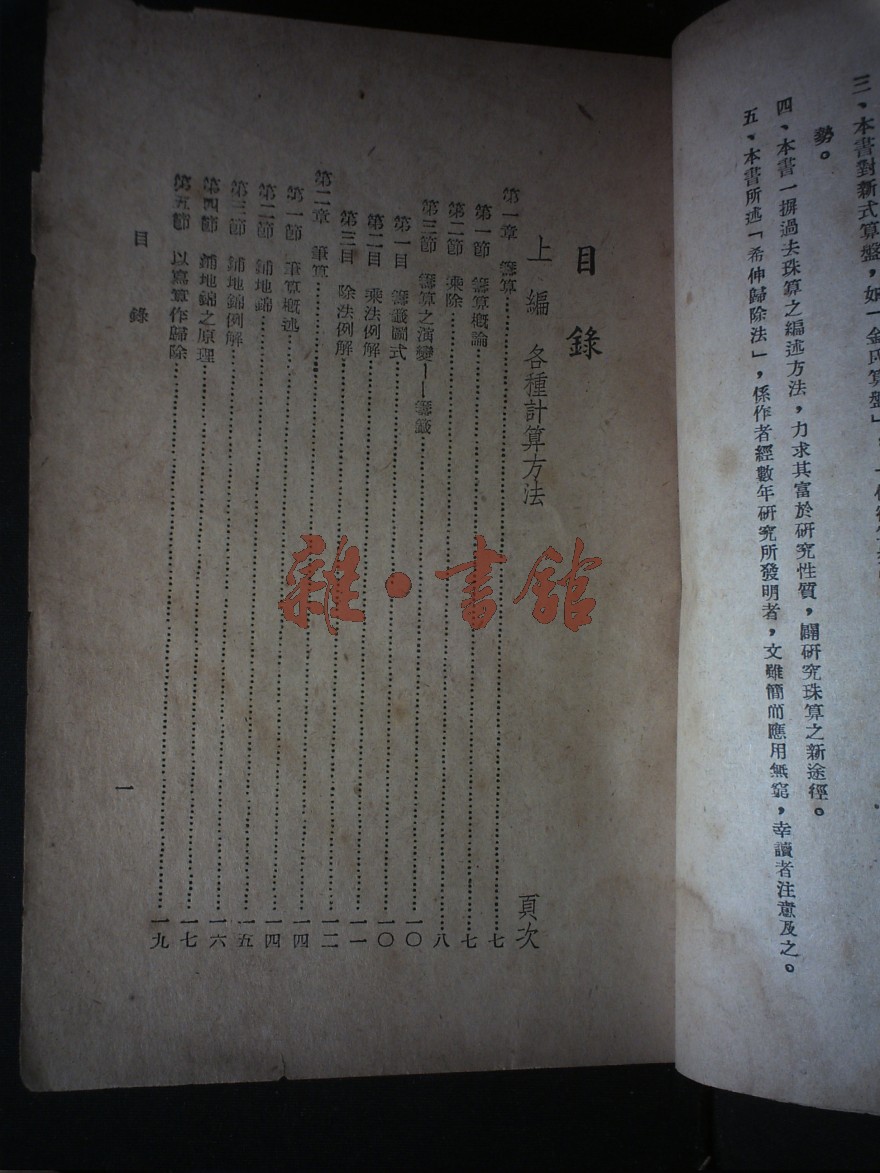 三、本書對新式算盤，如「金氏算盤」，
勢。
四、本書一摒過去珠算之編述方法，力求其富於研究性質，闢研究珠算之新途徑。
五、本書所述「希仲歸除法」，係作者經數年研究所發明者，文雖簡而應用無窮，幸讀者注意及之。
目錄
上編 各種計算方法 頁次
第一章 籌算……七
第一節 籌算概論……七
第二節 乘除……八
第三節 籌算之演變——籌籤……一〇
第一目 籌籤圖式……一〇
第二目 乘法例解……一一
第三目 除法例解……一二
第二章 筆算……一四
第一節 筆算概述……一四
第二節 鋪地錦……一五
第三節 鋪地錦例解……一六
第四節 鋪地錦之原理……一七
第五節 以寫算作歸除……一九
目錄
一
雜·書館